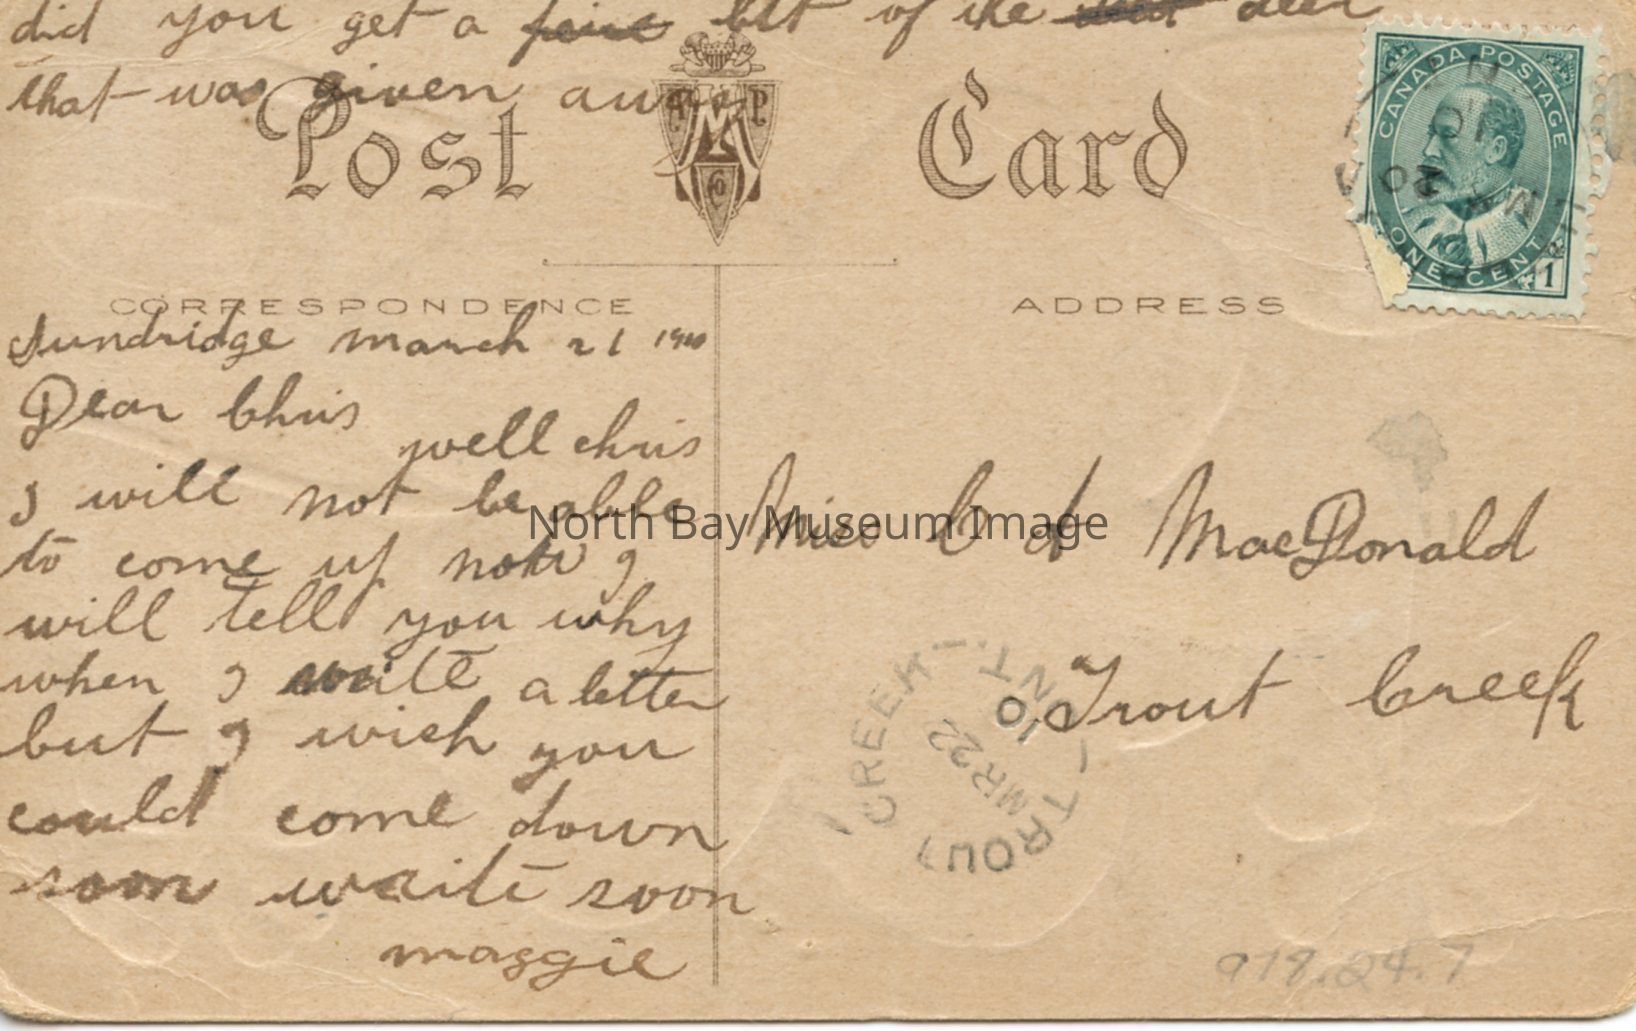 did you get a bit of the deer
that was given away
Post Card
M P Co
CANADA POSTAGE
ONE CENT
1
CORRESPONDENCE
ADDRESS
Sundridge march 21 1910
Dear Chris
well chris
I will not be able
to come up now I
will tell you why
when I write a letter
but I wish you
could come down
soon write soon
maggie
Miss C A MacDonald
Trout Creek
TROUT CREEK ONT.
MR 22
10
979.24.7
North Bay Museum Image